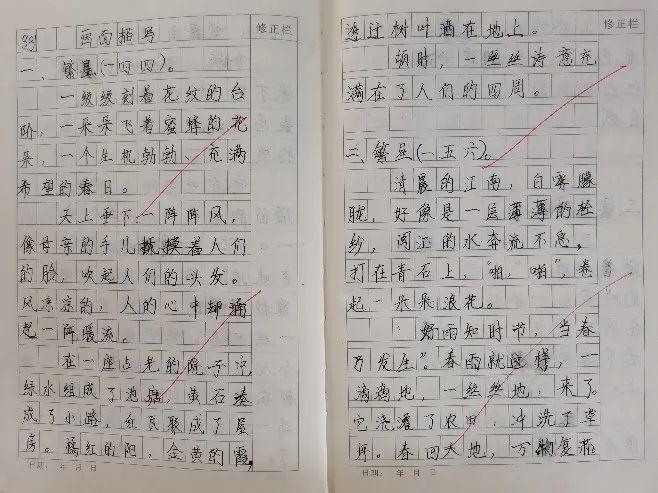 33 画面描写 修正栏
一、繁星(一四四)。
一级级刻着花纹的台
阶，一朵朵飞着蜜蜂的花
朵，一个生机勃勃、充满
希望的春日。
天上垂下一阵阵风，
像母亲的手儿抚摸着人们
的脸，吹起人们的头发。
风凉凉的，人的心中却涌
起一阵暖流。
在一座古老的院子中，
绿水组成了池塘，黄石凑
成了小路，红瓦聚成了屋
房。橘红的阳，金黄的霞，
日期： 年 月 日
修正栏
透过树叶洒在地上。
顿时，一丝丝诗意充
满在了人们的四周。
二、繁星(一五六)。
清晨的江南，白雾朦
胧，好像是一层薄薄的轻
纱，闽江的水奔流不息，
打在青石上，“啪，啪”，卷
起一朵朵浪花。
“好雨知时节，当春
乃发生”。春雨就这样，一
滴滴地，一丝丝地，来了。
它浇灌了农田，冲洗了草
坪。春回大地，万物复苏
日期： 年 月 日